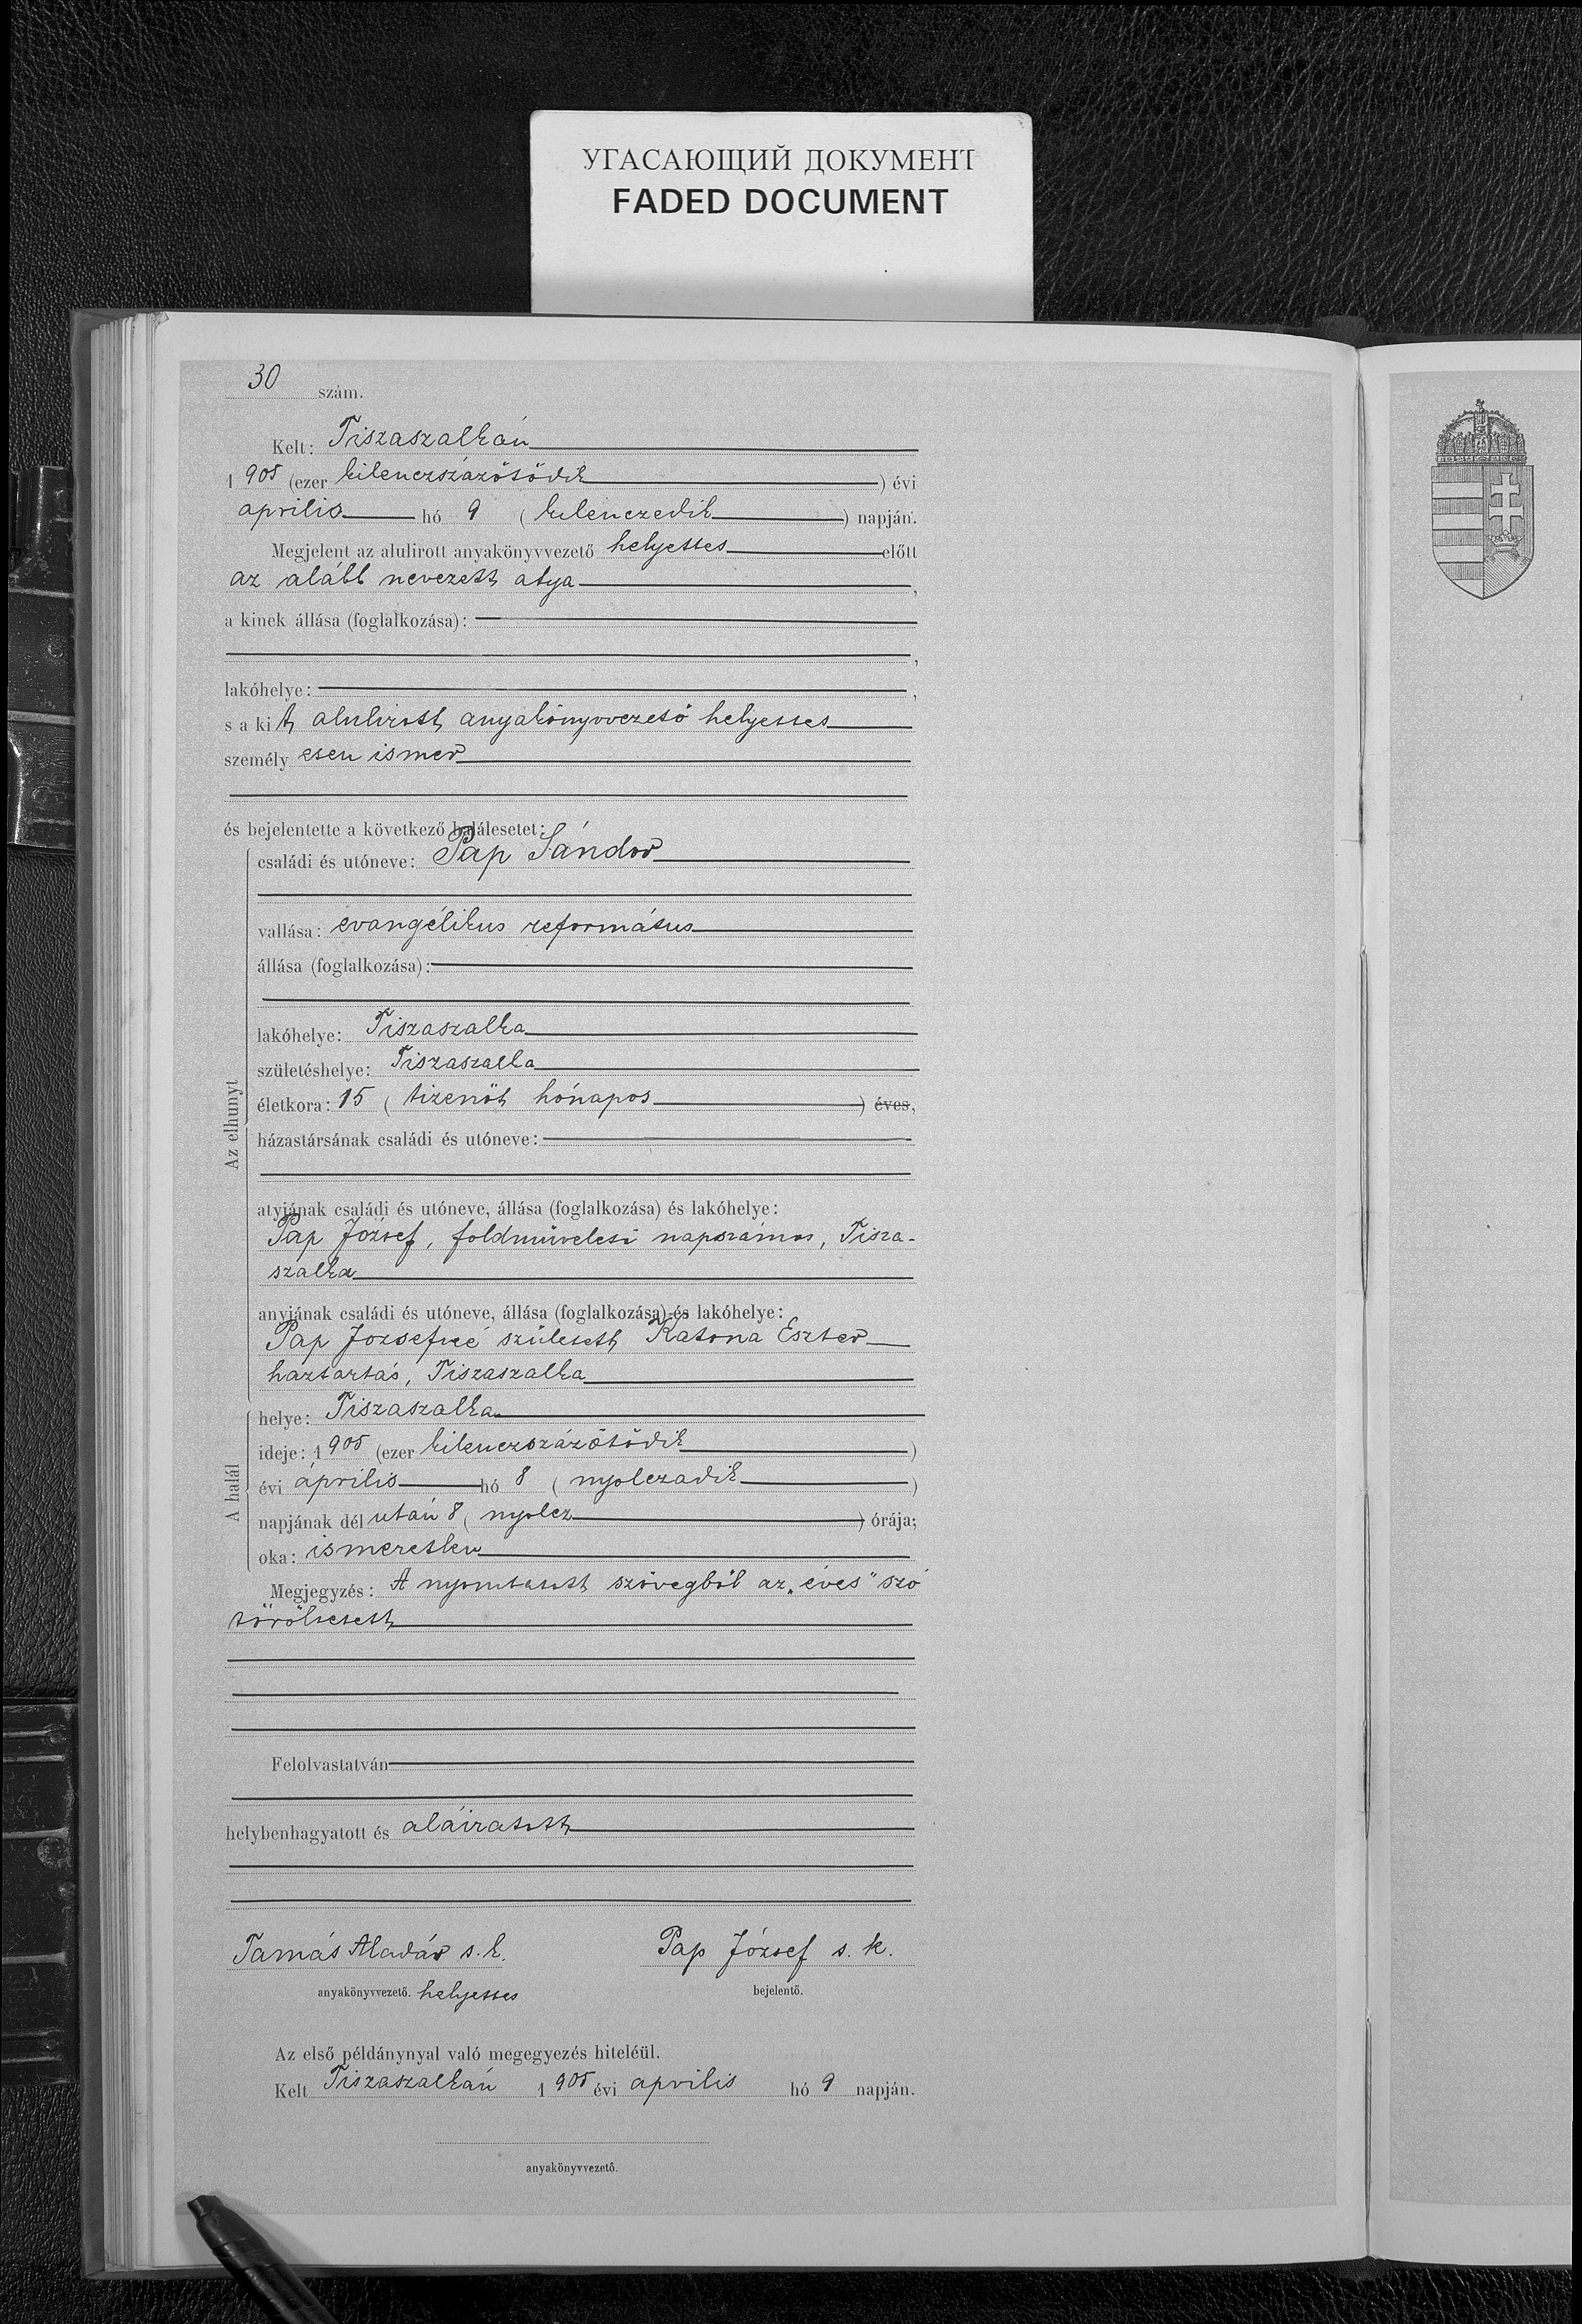 УГАСАЮЩИЙ ДОКУМЕНТ
FADED DOCUMENT
30 szám.
Kelt: Tiszaszalkán
1905 (ezer kilenczszázötödik ) évi
április hó 9 ( kilenczedik ) napján.
Megjelent az alulirott anyakönyvvezető helyettes előtt
az alább nevezett atya ,
a kinek állása (foglalkozása):
,
lakóhelye: ,
s a kit alulirott anyakönyvvezető helyettes
személyesen ismer
és bejelentette a következő halálesetet:
Az elhunyt
családi és utóneve: Pap Sándor
vallása: evangélikus református
állása (foglalkozása):
lakóhelye: Tiszaszalka
születéshelye: Tiszaszalka
életkora: 15 ( tizenöt hónapos ) éves,
házastársának családi és utóneve:
atyjának családi és utóneve, állása (foglalkozása) és lakóhelye:
Pap József, földmüvelési napszámos, Tisza-
szalka
anyjának családi és utóneve, állása (foglalkozása) és lakóhelye:
Pap Józsefné született Katona Eszter
háztartás, Tiszaszalka
A halál
helye: Tiszaszalka
ideje: 1905 (ezer kilenczszázötödik )
évi április hó 8 ( nyolczadik )
napjának dél után 8 ( nyolcz ) órája;
oka: ismeretlen
Megjegyzés: A nyomtatott szövegből az „éves" szó
töröltetett
Felolvastatván
helybenhagyatott és aláiratott
Tamás Aladár s. k. Pap József s. k.
anyakönyvvezető. helyettes bejelentő.
Az első példánynyal való megegyezés hiteléül.
Kelt Tiszaszalkán 1905 évi április hó 9 napján.
anyakönyvvezető.